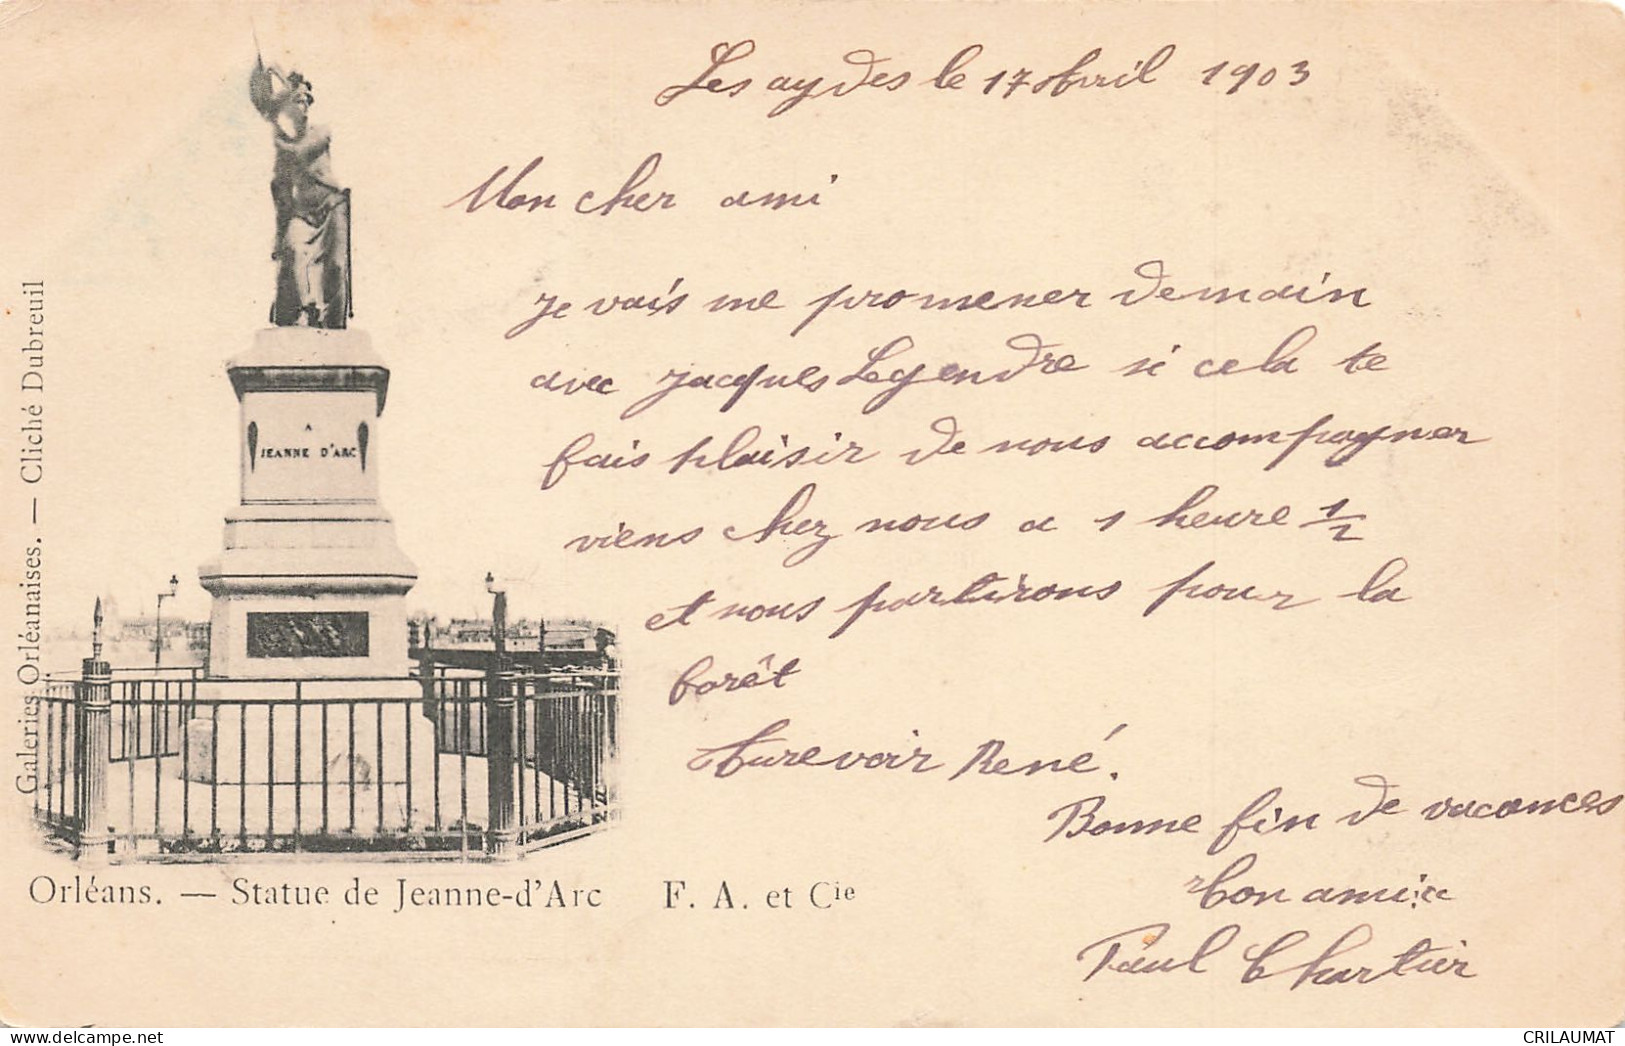 Les aydes le 17 Avril 1903
Mon cher ami
je vais me promener demain
avec jacques Legendre si cela te
fais plaisir de nous accompagner
viens chez nous a 1 heure 1/2
et nous partirons pour la
forêt
Aurevoir René.
Bonne fin de vacances
Ton ami
Paul Chartier
A
JEANNE D'ARC
Galeries Orléanaises. — Cliché Dubreuil
Orléans. — Statue de Jeanne-d'Arc F. A. et Cie
CRILAUMAT